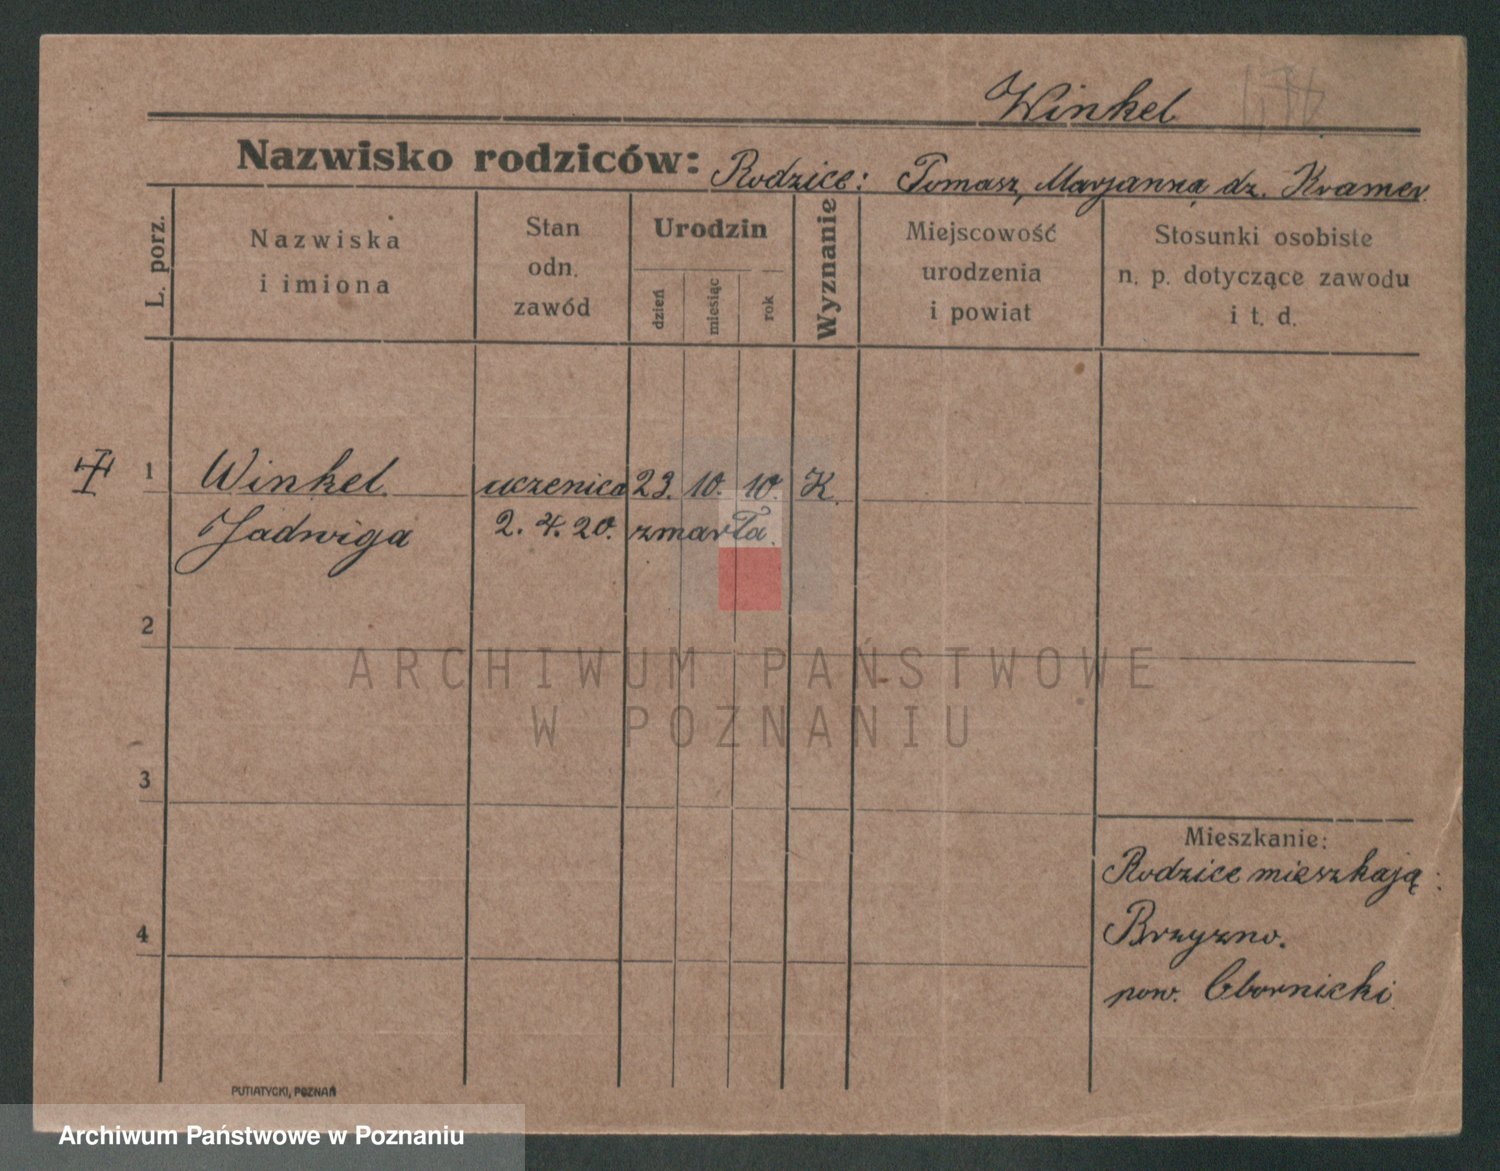 Winkel
Nazwisko rodziców: Rodzice: Tomasz, Marjanna dz. Kramer.
L. porz.
Nazwiska
i imiona
Stan
odn.
zawód
Urodzin
dzień
miesiąc
rok
Wyznanie
Miejscowość
urodzenia
i powiat
Stosunki osobiste
n. p. dotyczące zawodu
i t. d.
1 Winkel uczenica 23. 10. 10. K.
Jadwiga 2. 4. 20. zmarła.
2
ARCHIWUM PAŃSTWOWE
W POZNANIU
3
Mieszkanie:
Rodzice mieszkają:
4 Brzyzno.
pow. Obornicki
PUTIATYCKI, POZNAŃ
Archiwum Państwowe w Poznaniu